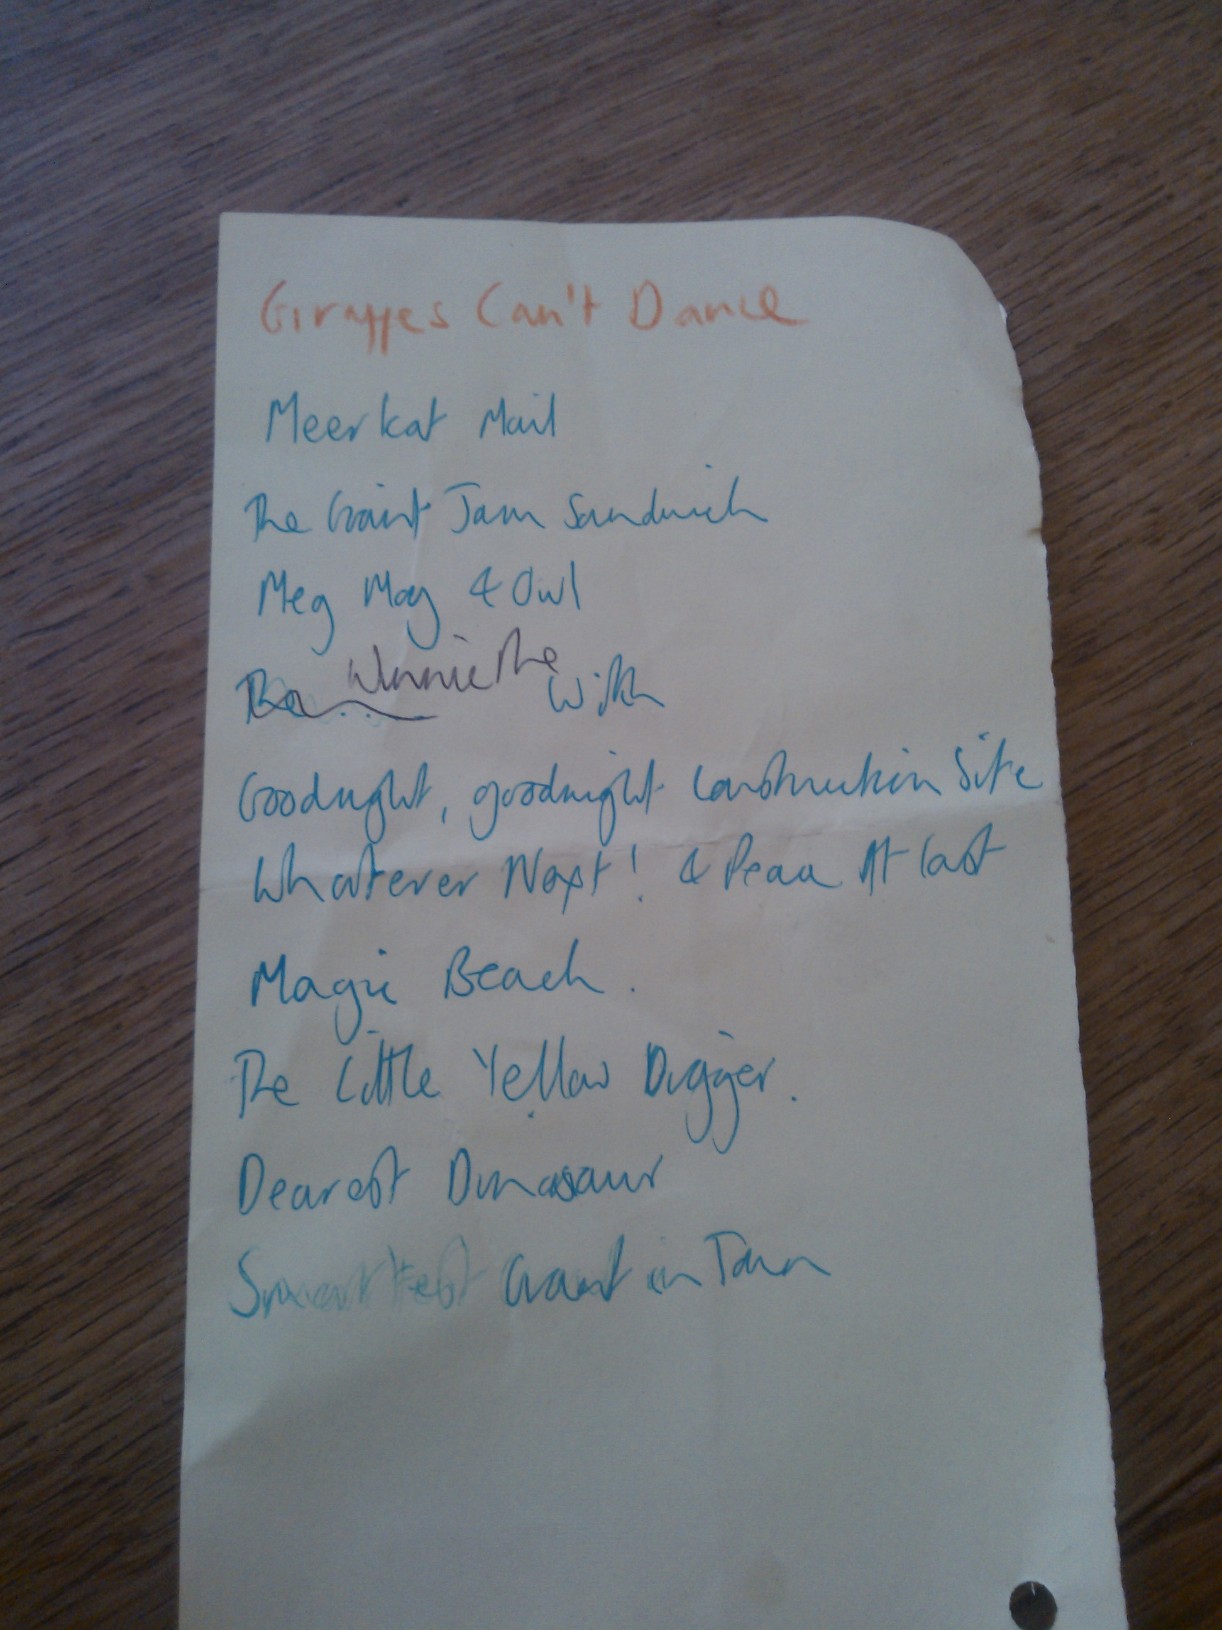 Giraffes Can't Dance
Meerkat Mail
The Giant Jam Sandwich
Meg Mog & Owl
The Winnie the Witch
Goodnight, goodnight Construction Site
Whatever Next! & Peace At last
Magic Beach.
The Little Yellow Digger.
Dearest Dinosaur
Smartest Giant in Town